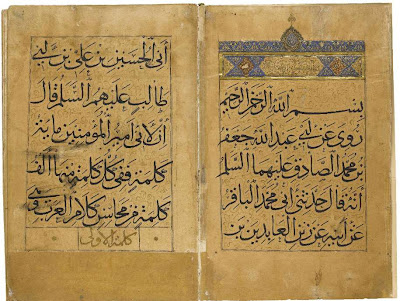 بسم الله الرحمن الرحيم
روي عن ابي عبد الله جعفر
بن محمد الصادق عليهما السلم
انه قال حدثني ابي محمد الباقر
عن ابيه عن زين العابدين بن
أبي الحسين بن علي بن ابي
طالب عليهم السلم قال
ان لابي امير المؤمنين ماية
كلمة ففي كل كلمة منها الف
كلمة من محاسن كلام العرب